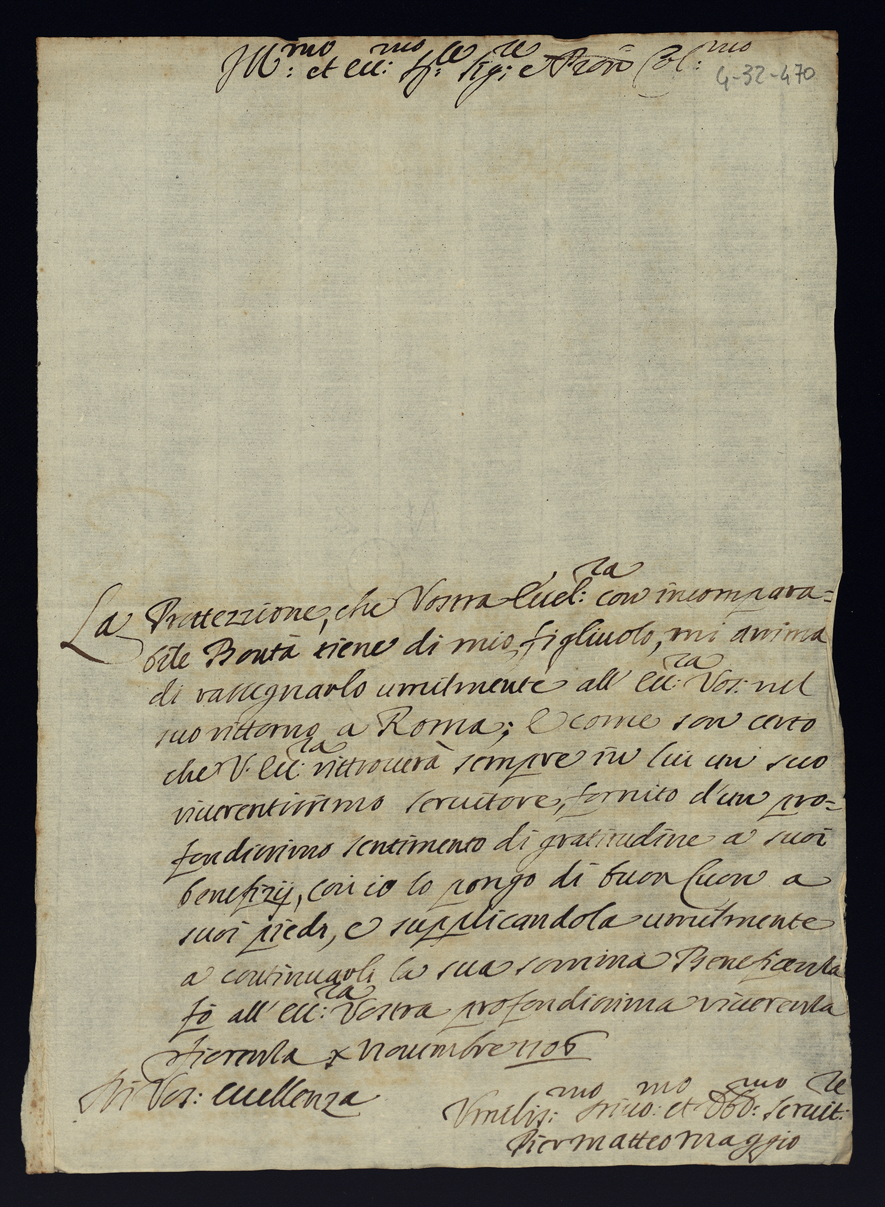 Ill:mo et Ecc:mo Sig:re Sig:re e Pron Col:mo
4-32-470
La Prottezzione, che Vostra Eccel:za con incompara=
bile Bontà tiene di mio figliuolo, mi anima
di rassegnarlo umilmente all' Ecc:za Vos: nel
suo rittorno a Roma; E come son certo
che V: Ecc:za rittrouerà sempre in lui un suo
riuerentissimo seruitore, fornito d'un pro=
fondissimo sentimento di gratitudine a suoi
benefizij, così io lo pongo di buon Cuore a
suoi piedi, e supplicandola umilmente
a continuarli la sua somma Beneficenza
fò all' Ecc:za Vostra profondissima riuerenza
Fiorenza x Nouembre 1706
Di Vos: Eccellenza
Vmilis:mo et Obb:mo Seruit:re
Piermatteo Maggio